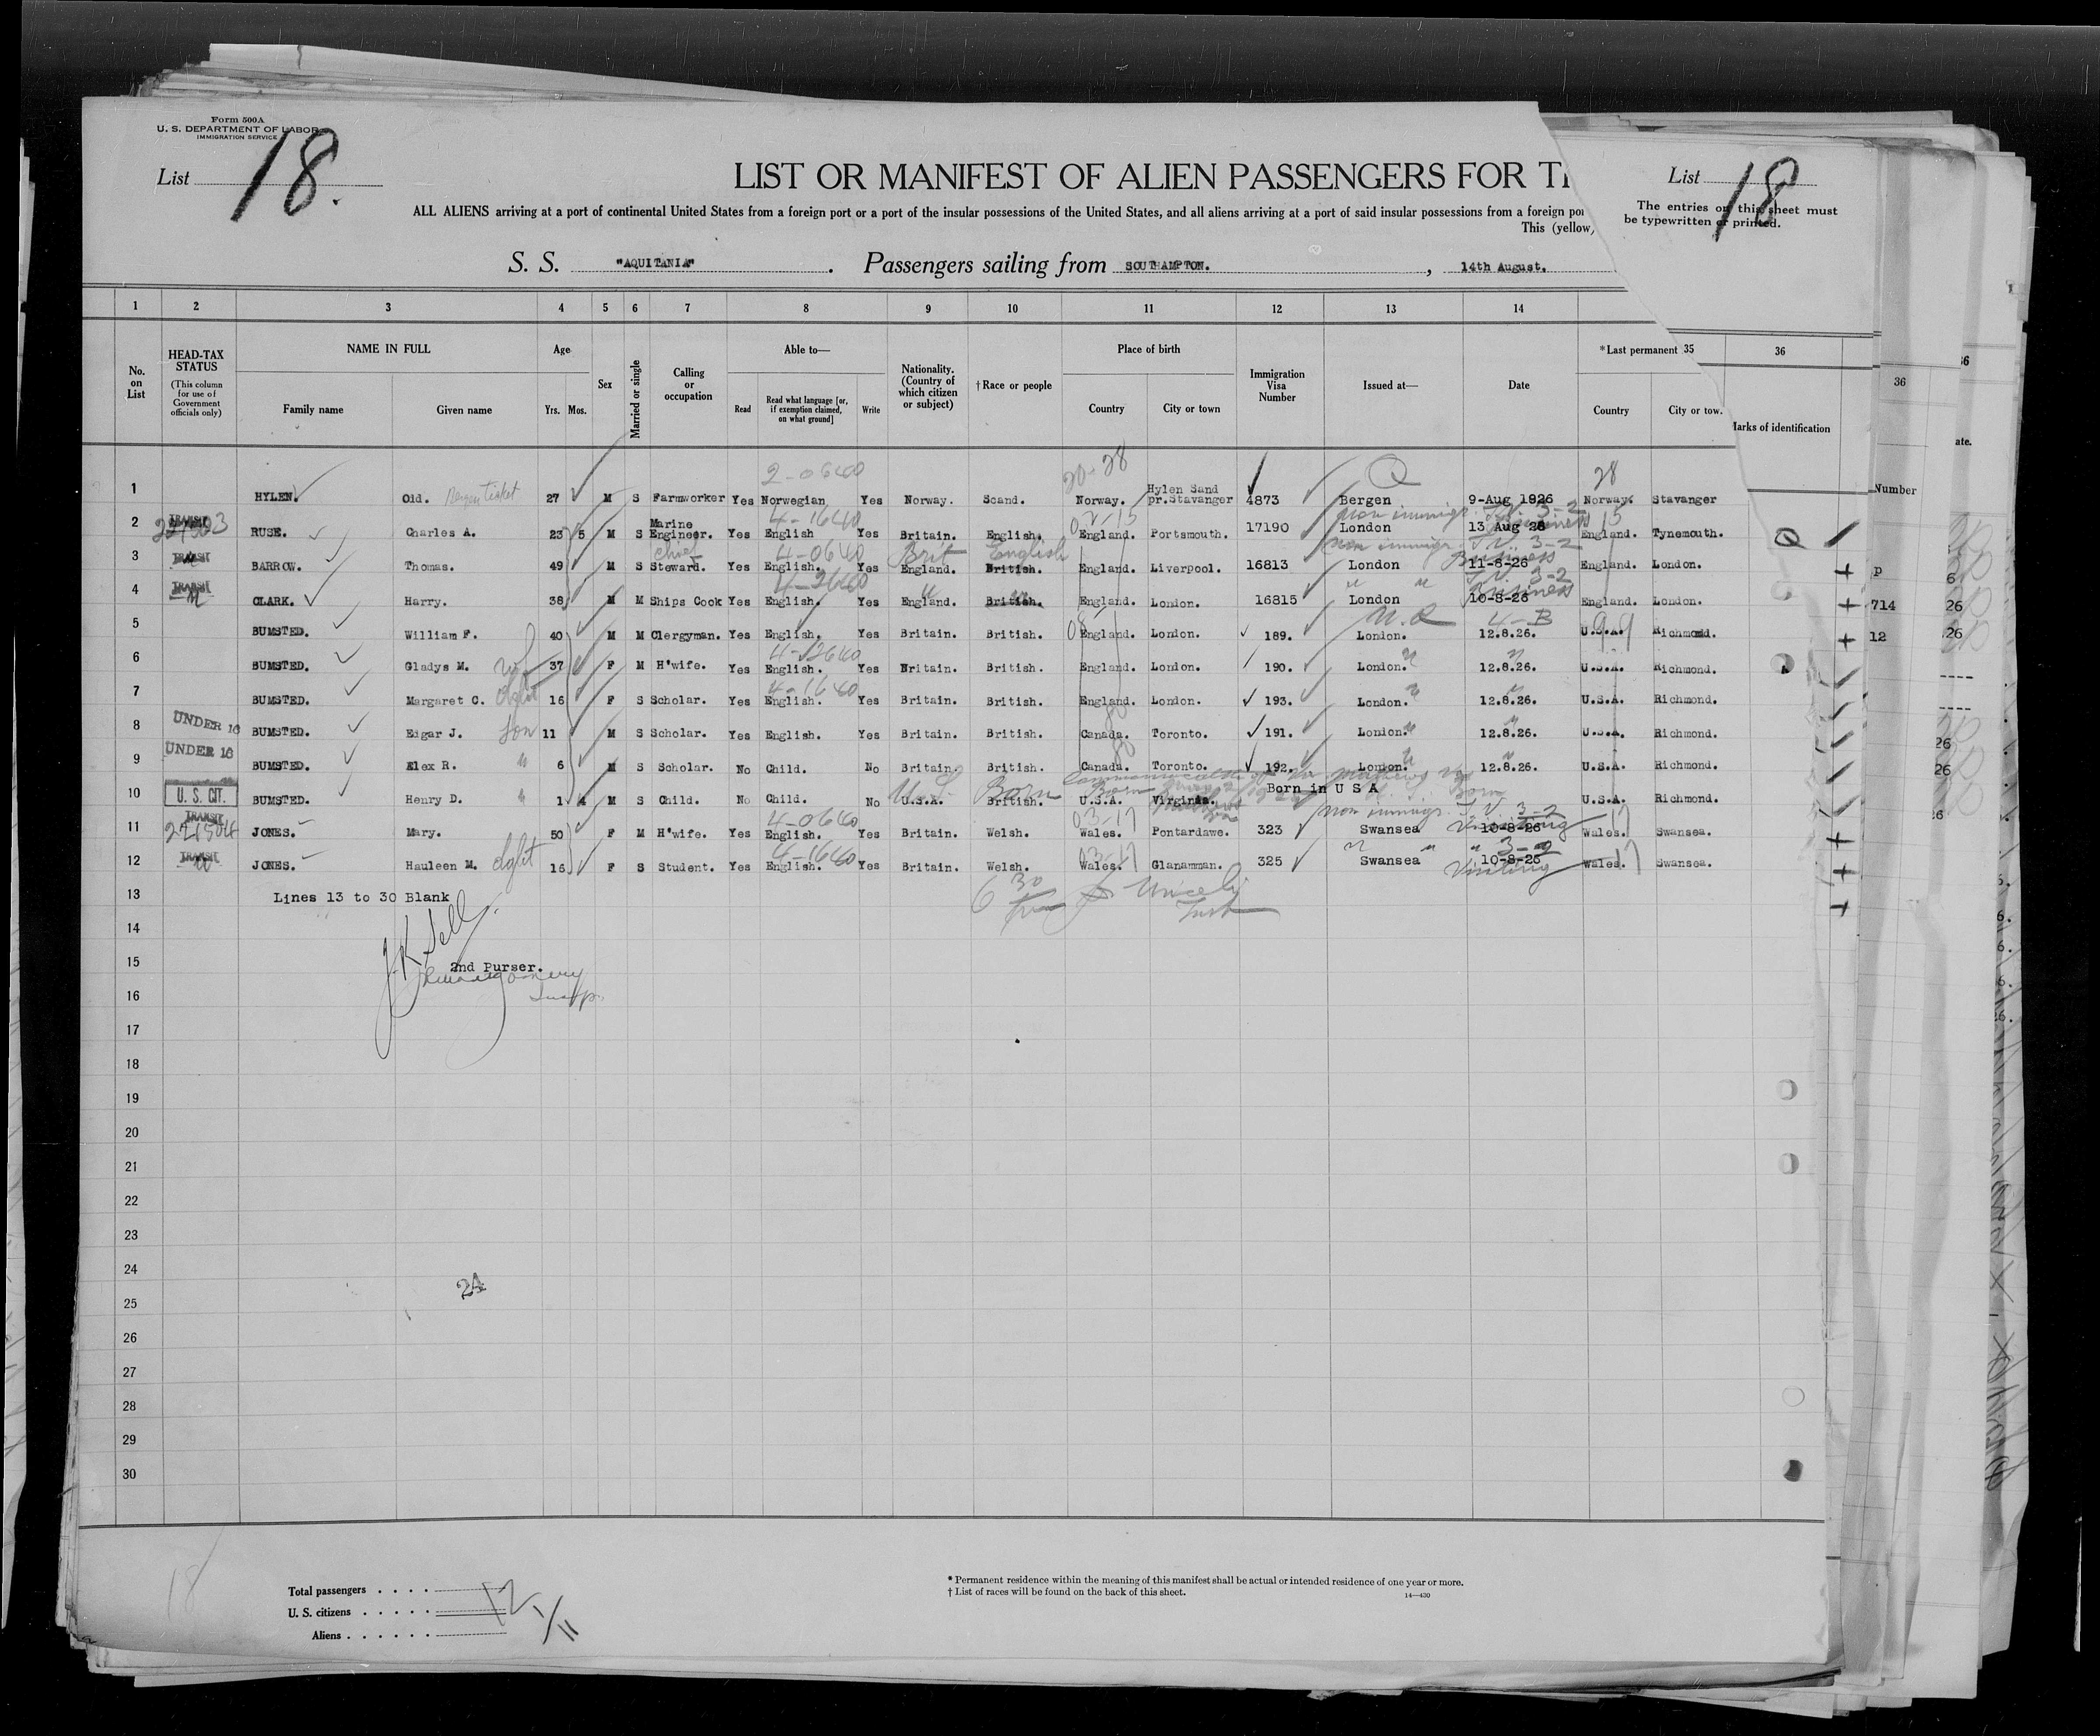 Form 500A
U. S. DEPARTMENT OF LABOR
IMMIGRATION SERVICE
List 18.
LIST OR MANIFEST OF ALIEN PASSENGERS FOR TH
List 18
The entries on this sheet must
be typewritten or printed.
ALL ALIENS arriving at a port of continental United States from a foreign port or a port of the insular possessions of the United States, and all aliens arriving at a port of said insular possessions from a foreign por
This (yellow)
S. S. "AQUITANIA" . Passengers sailing from SOUTHAMPTON. , 14th August.
1 2 3 4 5 6 7 8 9 10 11 12 13 14
No. on List
HEAD-TAX STATUS (This column for use of Government officials only)
NAME IN FULL
Family name Given name
Age Yrs. Mos.
Sex
Married or single
Calling or occupation
Able to—
Read Read what language [or, if exemption claimed, on what ground] Write
Nationality. (Country of which citizen or subject)
†Race or people
Place of birth
Country City or town
Immigration Visa Number
Issued at—
Date
*Last permanent 35 36
Country City or tow.
Marks of identification
36
Number
ate.
2-0640 20-28 28
1 HYLEN. Old. Bergen ticket 27 M S Farmworker Yes Norwegian Yes Norway. Scand. Norway. Hylen Sand pr.Stavanger 4873 Bergen 9-Aug 1926 Norway. Stavanger
4-1640 non immigr. 3-2
2 TRANSIT RUSE. Charles A. 23 5 M S Marine Engineer. Yes English Yes Britain. English. England. Portsmouth. 17190 London 13 Aug 26 England. Tynemouth.
Chief 4-0640 Brit English non immigr. 3-2 Business
3 TRANSIT BARROW. Thomas. 49 M S Steward. Yes English. Yes England. British. England. Liverpool. 16813 London 11-8-26 England. London.
4-2640 3-2 Business
4 TRANSIT CLARK. Harry. 38 M M Ships Cook Yes English. Yes England. British. England. London. 16815 London 10-8-26 England. London.
4-B
5 BUMSTED. William F. 40 M M Clergyman. Yes English. Yes Britain. British. England. London. 189. London. 12.8.26. U.S.A. Richmond.
6 BUMSTED. Gladys M. wf 37 F M H'wife. Yes English. Yes Britain. British. England. London. 190. London. 12.8.26. U.S.A. Richmond.
4-1640
7 BUMSTED. Margaret C. dght 16 F S Scholar. Yes English. Yes Britain. British. England. London. 193. London. 12.8.26. U.S.A. Richmond.
8 UNDER 16 BUMSTED. Edgar J. Son 11 M S Scholar. Yes English. Yes Britain. British. Canada. Toronto. 191. London. 12.8.26. U.S.A. Richmond.
9 UNDER 16 BUMSTED. Alex R. " 6 M S Scholar. No Child. No Britain. British. Canada. Toronto. 192. London. 12.8.26. U.S.A. Richmond.
10 U. S. CIT. BUMSTED. Henry D. " 1 4 M S Child. No Child. No U.S.A. British. U.S.A. Virginia. Born in U S A U.S.A. Richmond.
4-0640 03-17 non immigr. 3-2
11 TRANSIT JONES. Mary. 50 F M H'wife. Yes English. Yes Britain. Welsh. Wales. Pontardawe. 323 Swansea 10-8-26 Visiting Wales. Swansea.
4-1640 03-17 " " 3-2
12 TRANSIT JONES. Hauleen M. dght 16 F S Student. Yes English. Yes Britain. Welsh. Wales. Glanamman. 325 Swansea 10-8-26 Visiting Wales. Swansea.
13 Lines 13 to 30 Blank
14
15 2nd Purser.
16 Insp.
17
18
19
20
21
22
23
24
24
25
26
27
28
29
30
p
714
12
Total passengers . . . . 12
U. S. citizens . . . . . 1
Aliens . . . . . . 11
18
* Permanent residence within the meaning of this manifest shall be actual or intended residence of one year or more.
† List of races will be found on the back of this sheet.
14—430